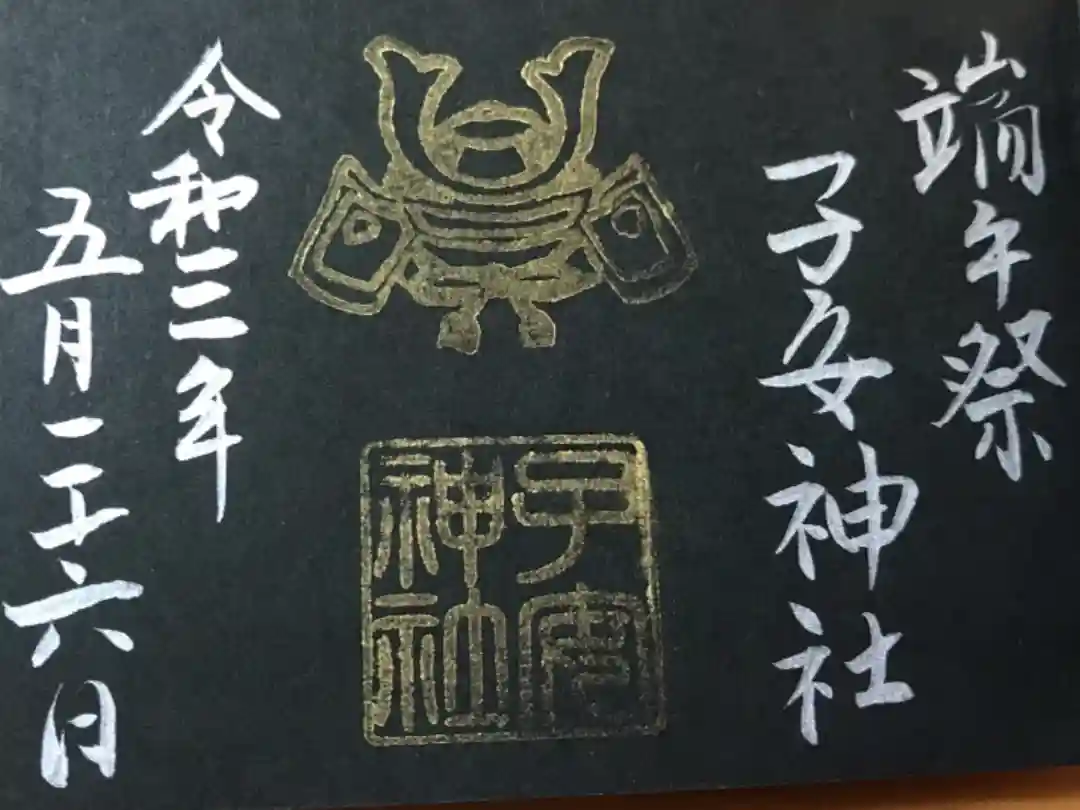 端午祭
子安神社
子安
神社
令和三年
五月二十六日